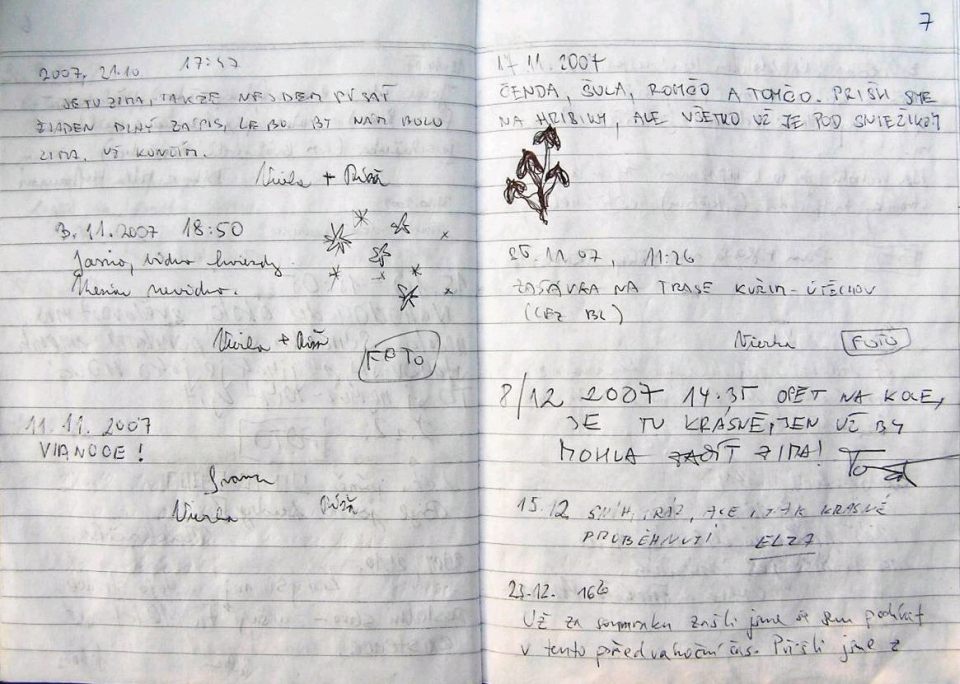 2007, 21.10. 17:47
JE TU ZIMA, TAKŽE NEJDEM PÍSAŤ
ŽIADEN DLHÝ ZÁPIS, LEBO BY NÁM BOLO
ZIMA, UŽ KONČÍM.
Vierka + Ríša
3.11.2007 18:50
Jasno, vidno hviezdy.
nevidno.
Vierka + Ríša
FOTO
11.11.2007
VIANOCE!
Ivana
Vierka Ríša
7
17.11.2007
ČENDA, ŠULA, ROMČO A TOMČO. PRIŠLI SME
NA HRIBIKY, ALE VŠETKO UŽ JE POD SNIEŽIKOM
25.11.07, 11:26
ZASTÁVKA NA TRASE KUŘIM-ÚTĚCHOV
(CEZ BC)
Vierka FOTO
8/12 2007 14:35 OPĚT NA KOLE,
JE TU KRÁSNĚ, JEN UŽ BY
MOHLA ZAČÍT ZIMA!
15.12 SNÍH, MRÁZ, ALE I TAK KRÁSNÉ
PROBĚHNUTÍ ELZA
23.12. 16
Už za soumraku zašli jsme se sem podívat
v tento předvánoční čas. Přišli jsme z